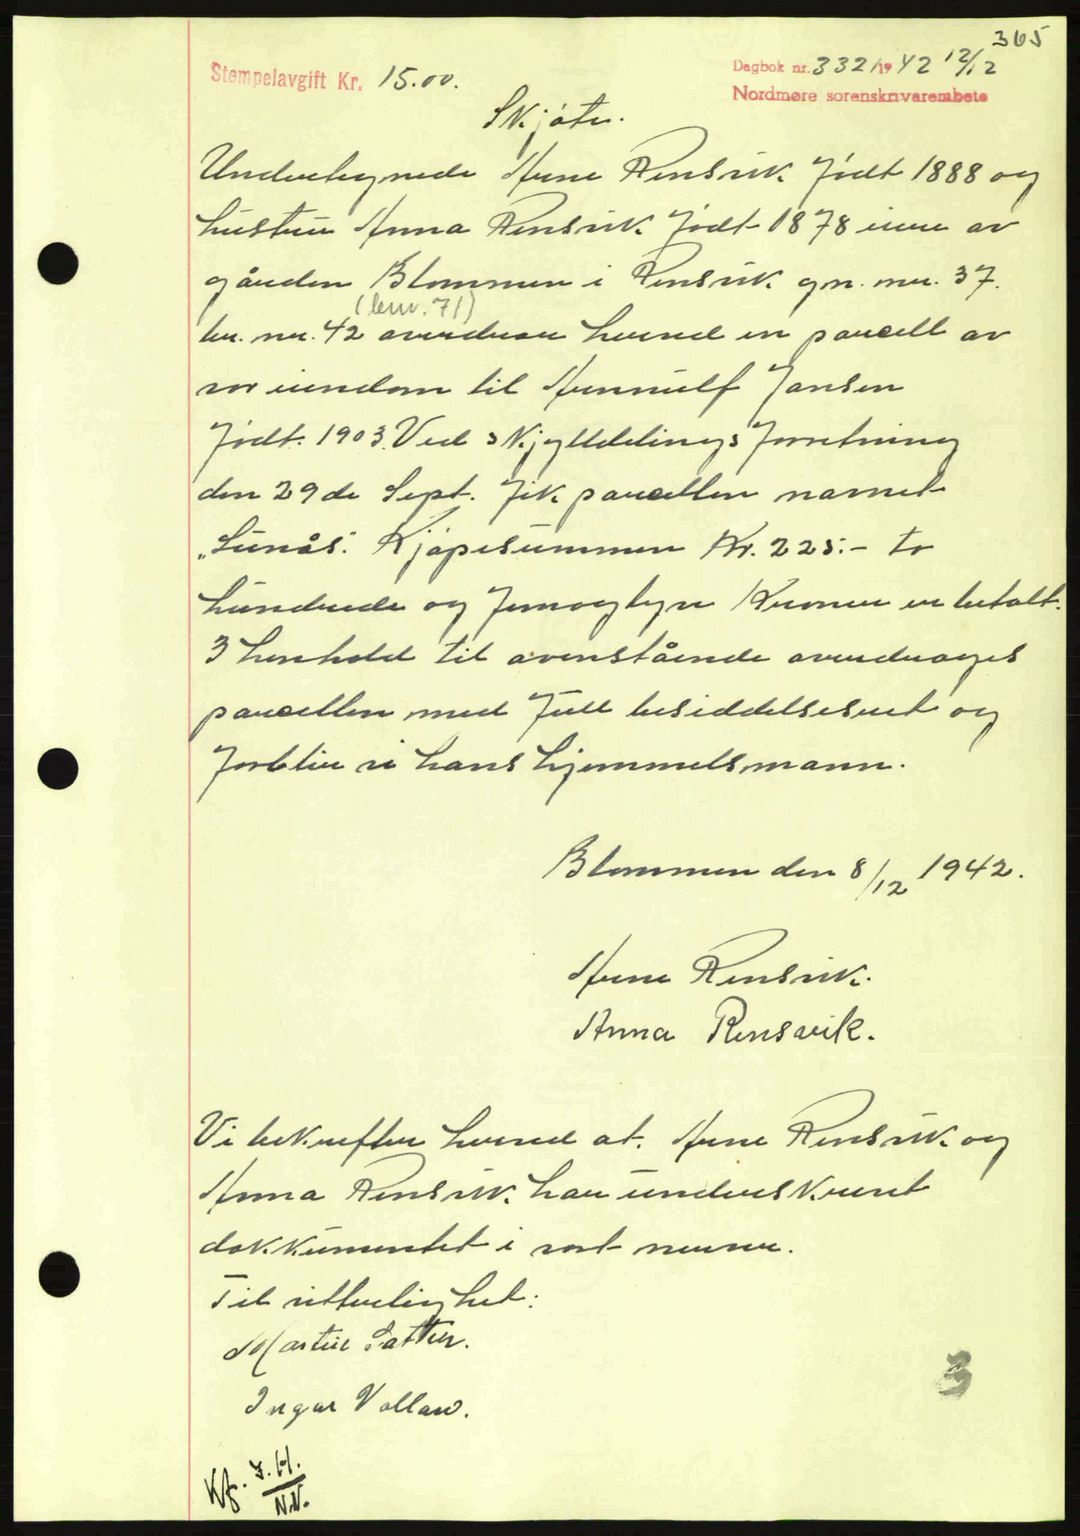 365
Stempelavgift Kr. 15.00.
Dagbok nr. 3321 1942 12/12
Nordmøre sorenskrivarembete
Skjøte.
Undertegnede Arne Rensvik født 1888 og
hustru Anna Rensvik født 1878 eiere av
gården Blommen i Rensvik gn. nr. 37.
(bnr. 71)
br. nr. 42 overdrar herved en parcell av
vor eiendom til Arnulf Jansen
født 1903. Ved skylddelings forretning
den 29de Sept. fik parcellen navnet
„Lunås". Kjøpesummen Kr. 225.- to
hundrede og femogtyve Kroner er betalt.
I henhold til ovenstående overdrages
parcellen med full besiddelsesret og
forblir vi hans hjemmelsmann.
Blommen den 8/12 1942.
Arne Rensvik.
Anna Rensvik.
Vi bekrefter herved at. Arne Rensvik og
Anna Rensvik har underskrevet
dokkumentet i vort nerver.
Til vitterlighet:
Martin Sætter.
Ingar Vollan.
3
Kf. J.H.
N.N.